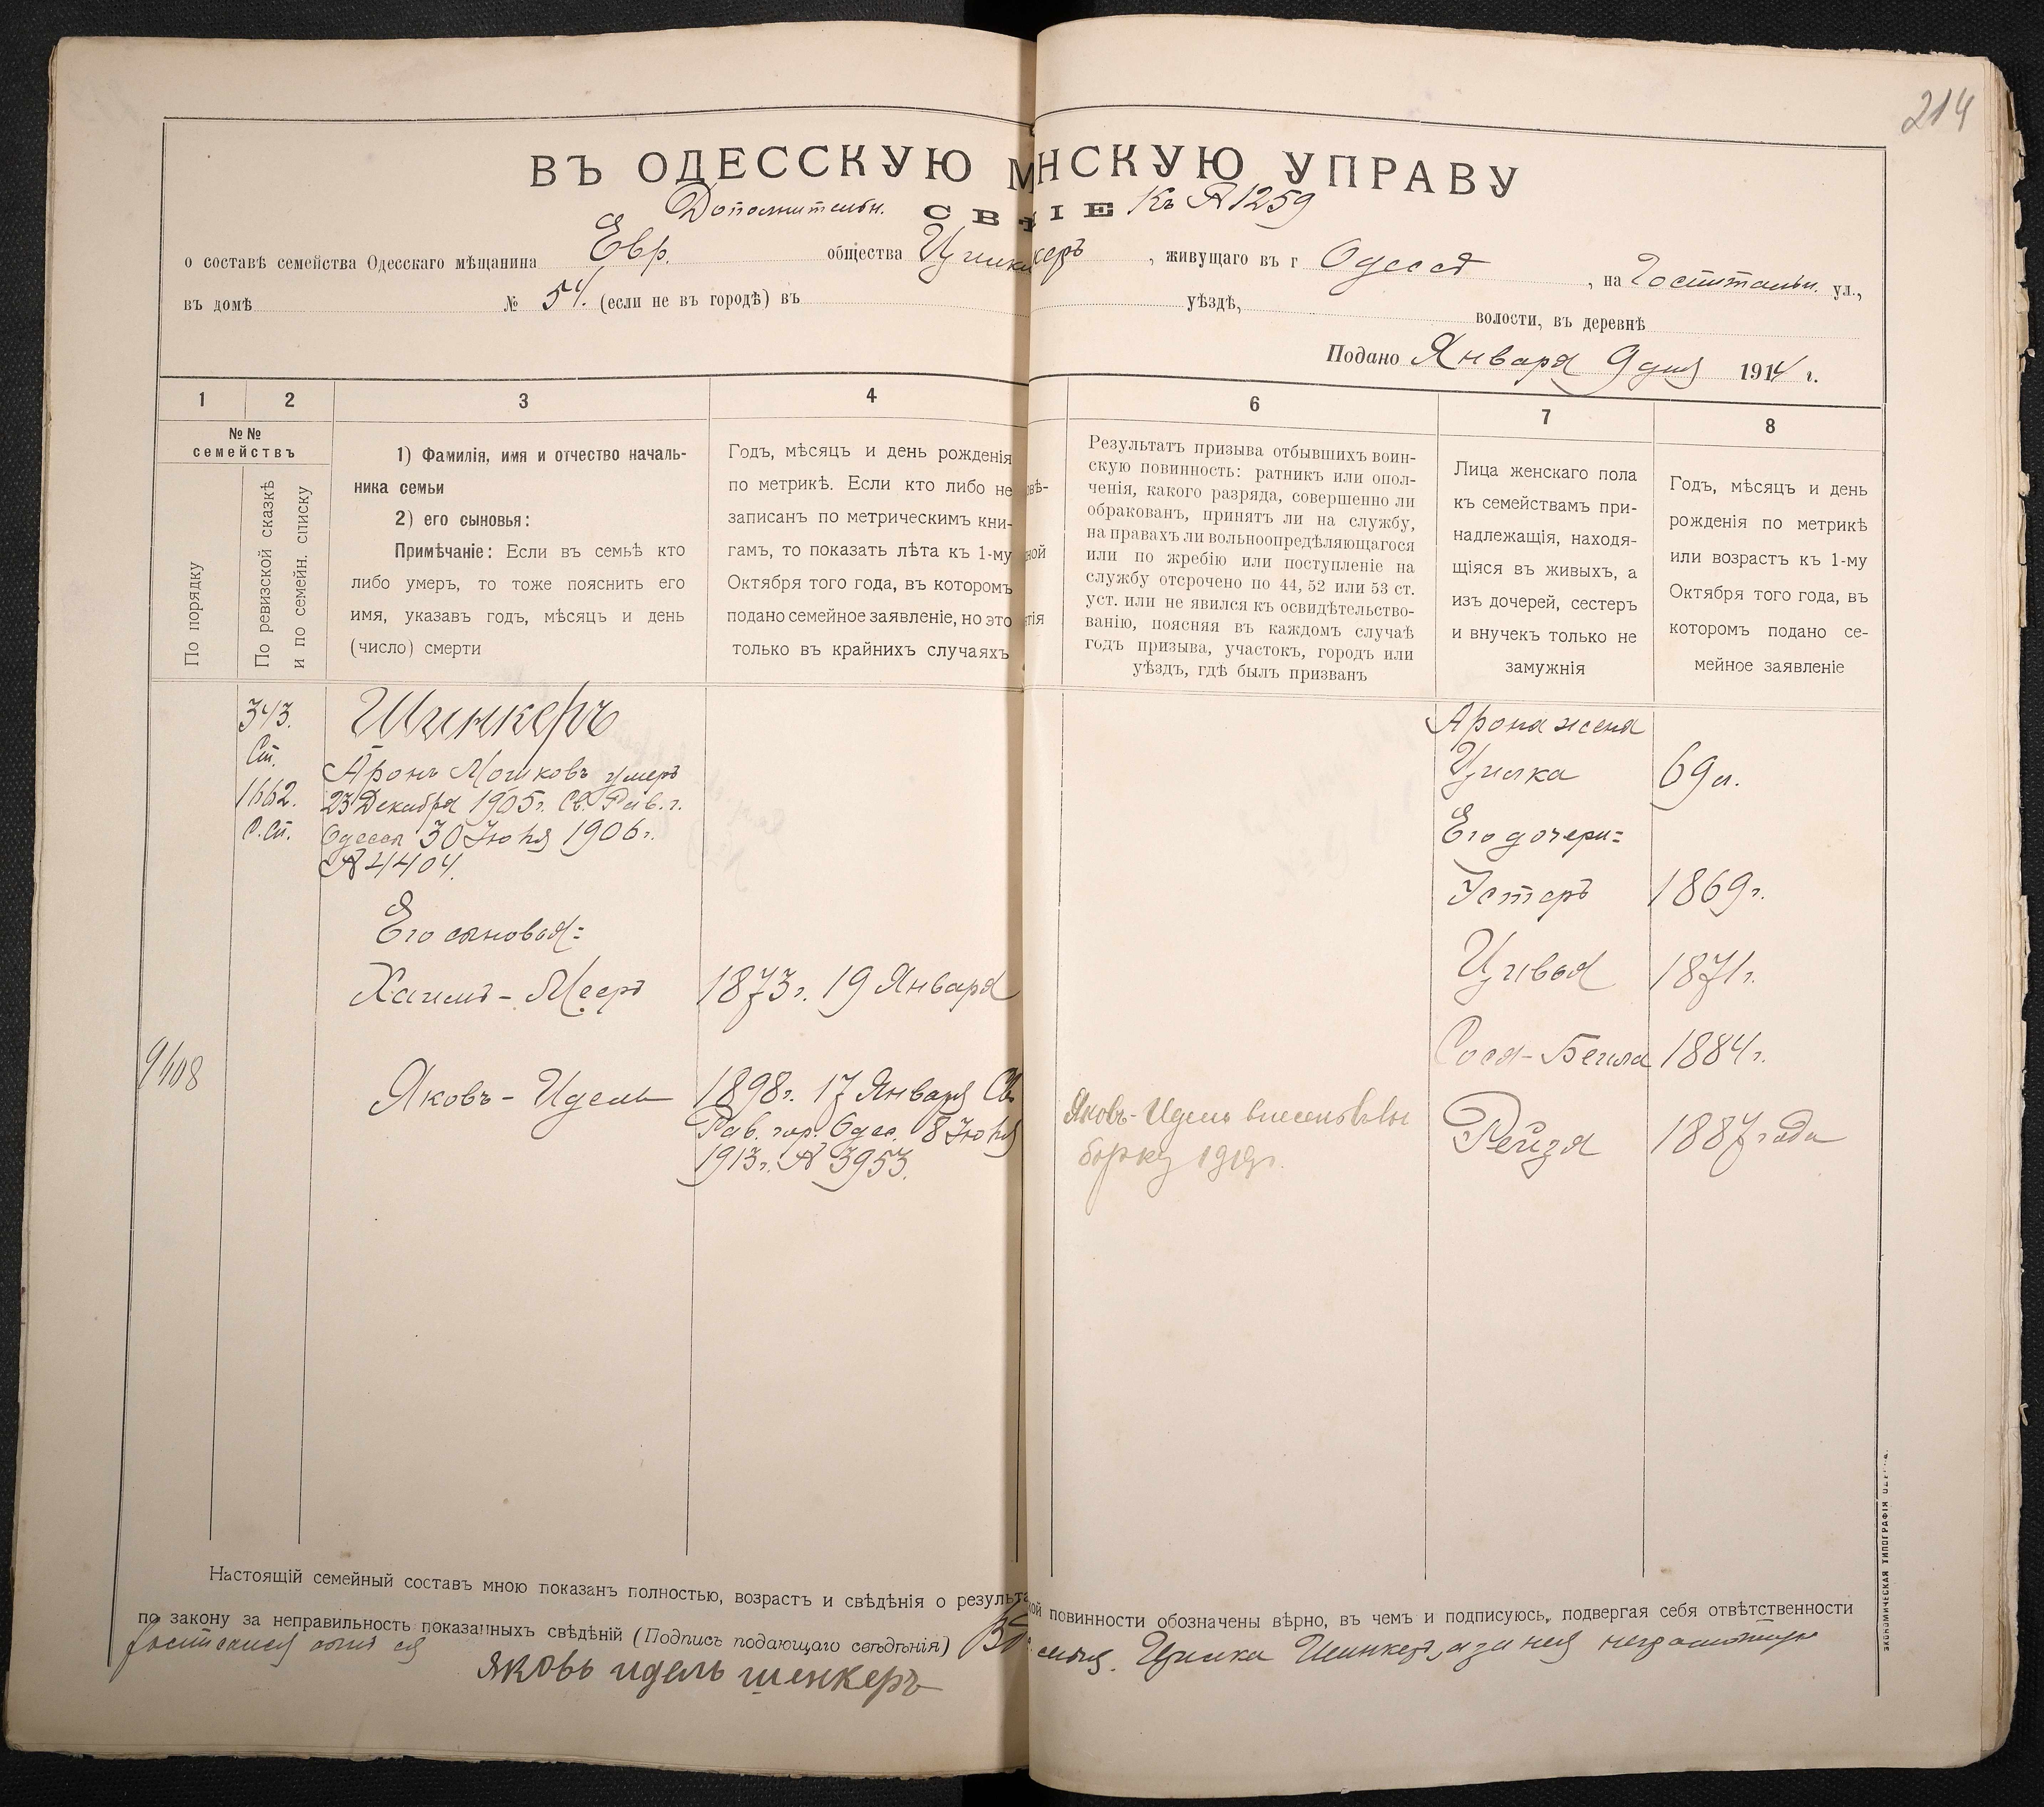 214
ВЪ ОДЕССКУЮ М НСКУЮ УПРАВУ
Дополнительн. СВ ІЕ Къ № 1259
о составѣ семейства Одесскаго мѣщанина Евр. общества , живущаго въ г Одессѣ , на Госпитальн. ул.,
въ домѣ № 54. (если не въ городѣ) въ уѣздѣ, волости, въ деревнѣ
Подано Января 9 дня 1914 г.
1 2 3 4 6 7 8
№№ семействъ
По порядку
По ревизской сказкѣ
и по семейн. списку
1) Фамилія, имя и отчество началь-
ника семьи
2) его сыновья:
Примѣчаніе: Если въ семьѣ кто
либо умеръ, то тоже пояснить его
имя, указавъ годъ, мѣсяцъ и день
(число) смерти
Годъ, мѣсяцъ и день рожденія
по метрикѣ. Если кто либо не
записанъ по метрическимъ кни-
гамъ, то показать лѣта къ 1-му
Октября того года, въ которомъ
подано семейное заявленіе, но это
только въ крайнихъ случаяхъ
овѣ-
ной
тія
Результатъ призыва отбывшихъ воин-
скую повинность: ратникъ или опол-
ченія, какого разряда, совершенно ли
обракованъ, принятъ ли на службу,
на правахъ ли вольноопредѣляющагося
или по жребію или поступленіе на
службу отсрочено по 44, 52 или 53 ст.
уст. или не явился къ освидѣтельство-
ванію, поясняя въ каждомъ случаѣ
годъ призыва, участокъ, городъ или
уѣздъ, гдѣ былъ призванъ
Лица женскаго пола
къ семействамъ при-
надлежащія, находя-
щіяся въ живыхъ, а
изъ дочерей, сестеръ
и внучекъ только не
замужнія
Годъ, мѣсяцъ и день
рожденія по метрикѣ
или возрастъ къ 1-му
Октября того года, въ
которомъ подано се-
мейное заявленіе
343.
Сп.
1662.
С. Сп.
Шинкеръ
Аронъ Мошковъ умеръ
23 Декабря 1905 г. Св. Рав. г.
Одессы 30 Іюня 1906 г.
№ 4404.
Его сыновья:
Хаимъ-Мееръ 1873 г. 19 Января
9/108
Яковъ-Идель 1898 г. 17 Января Св.
Рав. гор. Одес. 8 Іюня
1913 г. № 3953.
Яковъ-Идель внесенъ въ вы
борку
Арона жена
Цилка 69 л.
Его дочери:
Эстеръ 1869 г.
Цивья 1871 г.
Сося-Бейла 1884 г.
Рейзя 1887 года
Настоящій семейный составъ мною показанъ полностью, возрастъ и свѣдѣнія о результа ой повинности обозначены вѣрно, въ чемъ и подписуюсь, подвергая себя отвѣтственности
по закону за неправильность показанныхъ свѣдѣній (Подпись подающаго свѣдѣнія) Цилка Шинкеръ, а за нея неграмотную
яковъ идель шенкеръ
ЭКОНОМИЧЕСКАЯ ТИПОГРАФІЯ